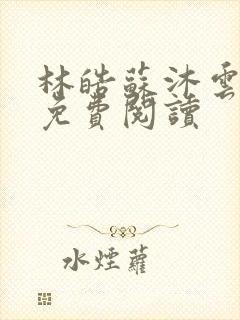 林皓蘇沐雲
免費閱讀
水煙蘿